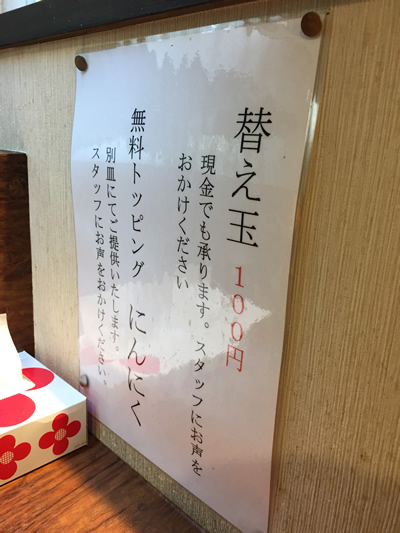 替え玉 100円
現金でも承ります。スタッフにお声を
おかけください
無料トッピング にんにく
別皿にてご提供いたします。
スタッフにお声をおかけください。